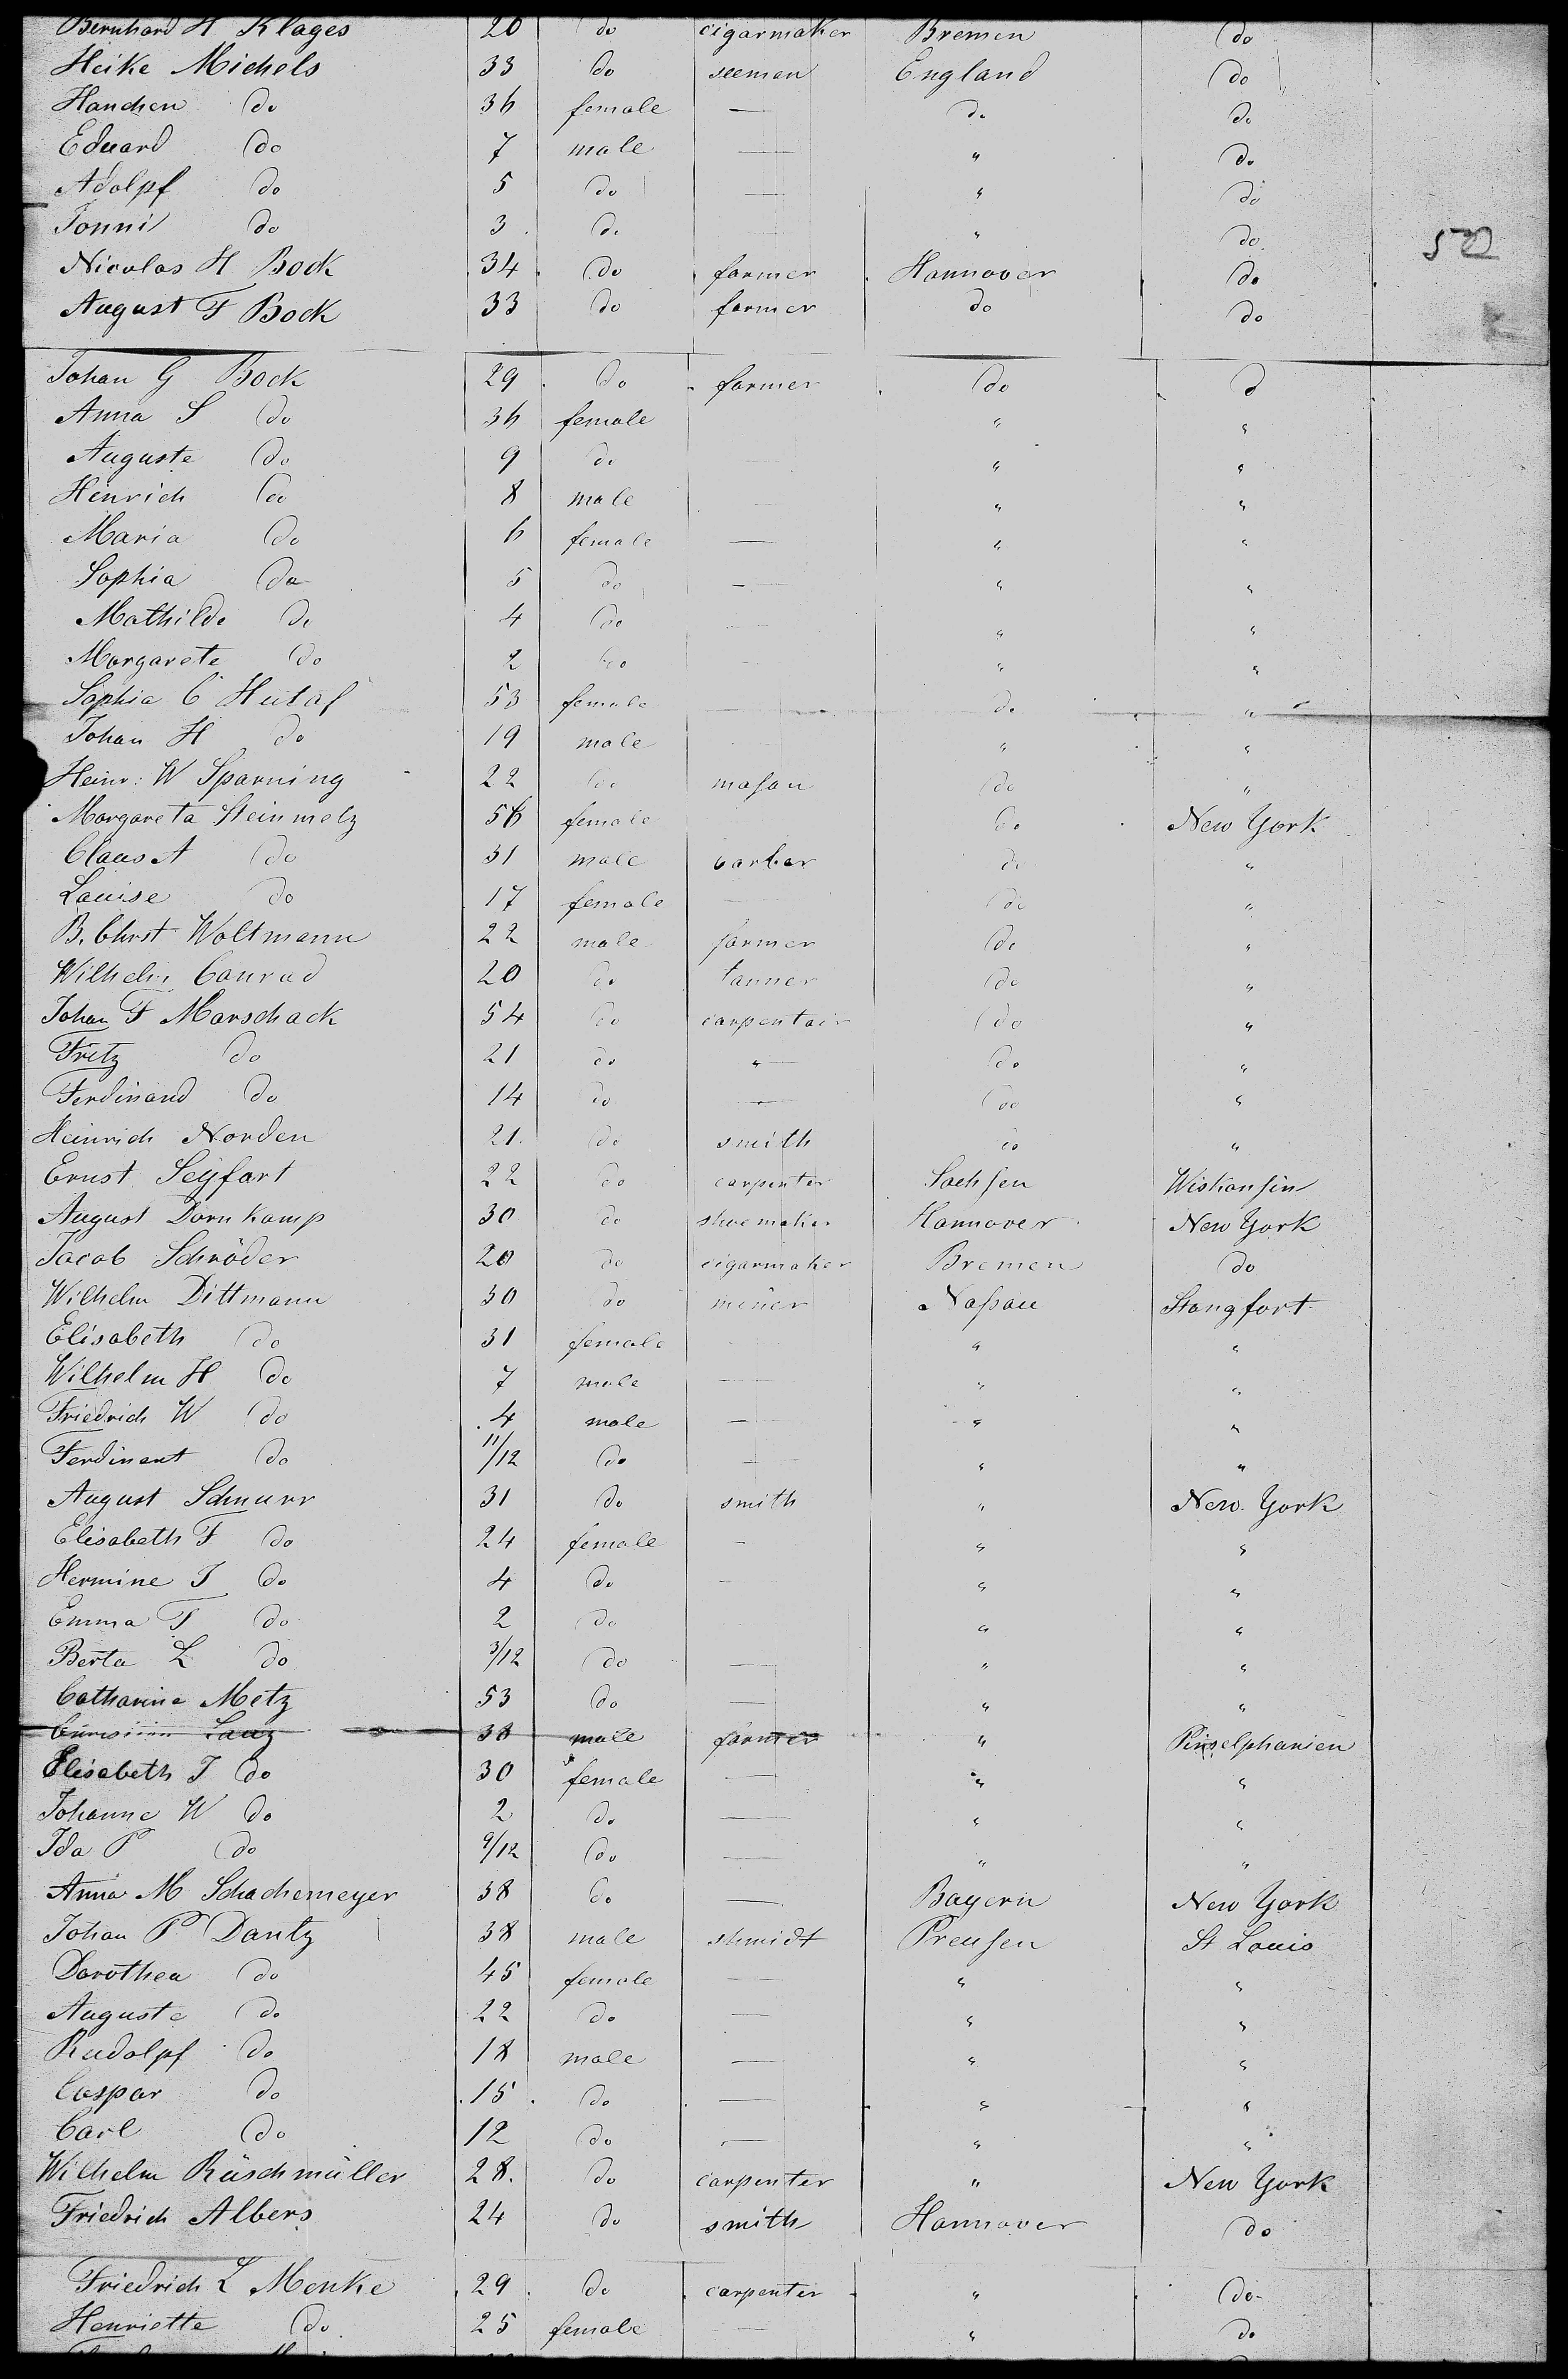 Bernhard H Klages 20 do cigarmaker Bremen do
Heike Michels 33 do seeman England do
Hanchen do 36 female — do do
Eduard do 7 male — " do
Adolpf do 5 do — " do
Jonni do 3 do — " do
522
Nicolas H Bock 34 do farmer Hannover do
August F Bock 33 do farmer do do
Johan G Bock 29 do farmer do d
Anna S do 36 female " "
Auguste do 9 do — " "
Henrich do 8 male — " "
Maria do 6 female — " "
Sophia do 5 do — " "
Mathilde do 4 do — " "
Margarete do 2 do — " "
Sophia C Hutaf 53 female — do "
Johan H do 19 male " "
Heinr: W Sparning 22 do mason do "
Margareta Steinmetz 56 female do New York
Claus A do 31 male barber do "
Louise do 17 female — do "
B. Chrst Woltmann 22 male farmer do "
Wilhelm Conrad 20 do tanner do "
Johan F Marschack 54 do carpentair do "
Fritz do 21 do " do "
Ferdinand do 14 do — do "
Heinrich Norden 21 do smith do "
Ernst Seyfart 22 do carpenter Sachsen Wiskonsin
August Dornkamp 30 do shoemaker Hannover New York
Jacob Schröder 20 do cigarmaker Bremen do
Wilhelm Dittmann 30 do miner Nassau Stangfort
Elisabeth do 31 female — " "
Wilhelm H do 7 male — " "
Friedrich W do 4 male — " "
Ferdinant do 11/12 do — " "
August Schnurr 31 do smith " New York
Elisabeth F do 24 female - " "
Hermine J do 4 do - " "
Emma F do 2 do " "
Berta L do 3/12 do — " "
Catharine Metz 53 do — " "
Lanz 38 male farmer " Pinselphanien
Elisabeth J do 30 female — " "
Johanne W do 2 do — " "
Ida P do 9/12 do — " "
Anna M Schachemeyer 38 do — Bayern New York
Johan P Dantz 38 male shmidt Preusen St Louis
Dorothea do 45 female — " "
Auguste do 22 do — " "
Rudolpf do 18 male — " "
Caspar do 15 do — " "
Carl do 12 do — " "
Wilhelm Rüschmüller 28 do carpenter " New York
Friedrich Albers 24 do smith Hannover do
Friedrich L Menke 29 do carpenter " do
Henriette do 25 female — " do